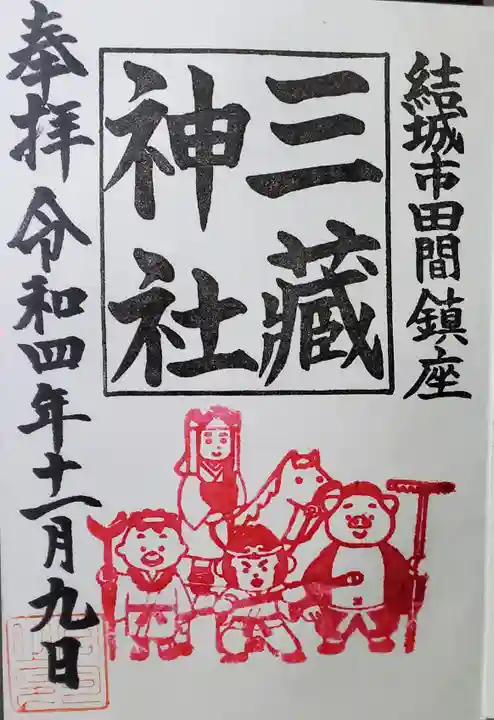 結城市田間鎮座
三蔵
神社
奉拝 令和四年十一月九日